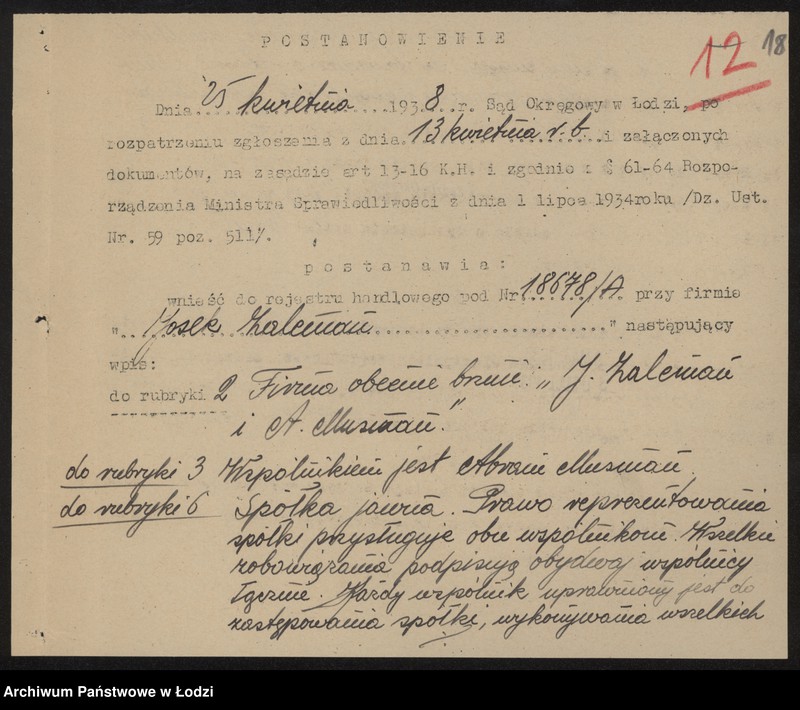 POSTANOWIENIE
12 18
Dnia 25 kwietnia 1938.r. Sąd Okręgowy w Łodzi, po
rozpatrzeniu zgłoszenia z dnia 13 kwietnia r.b. i załączonych
dokumentów, na zasadzie art 13-16 K.H. i zgodnie z § 61-64 Rozpo-
rządzenia Ministra Sprawiedliwości z dnia 1 lipca 1934roku /Dz. Ust.
Nr. 59 poz. 511/.
postanawia:
wnieść do rejestru handlowego pod Nr. 18678/A. przy firmie
" Josek Zalcman " następujący
wpis:
do rubryki 2 Firma obecnie brzmi: „J. Zalcman
i A. Musman."
do rubryki 3 Wspólnikiem jest Abram Musman.
do rubryki 6 Spółka jawna. Prawo reprezentowania
spółki przysługuje obu wspólnikom. Wszelkie
zobowiązania podpisują obydwaj wspólnicy
łącznie. Każdy wspólnik uprawniony jest do
zastępowania spółki, wykonywania wszelkich
Archiwum Państwowe w Łodzi